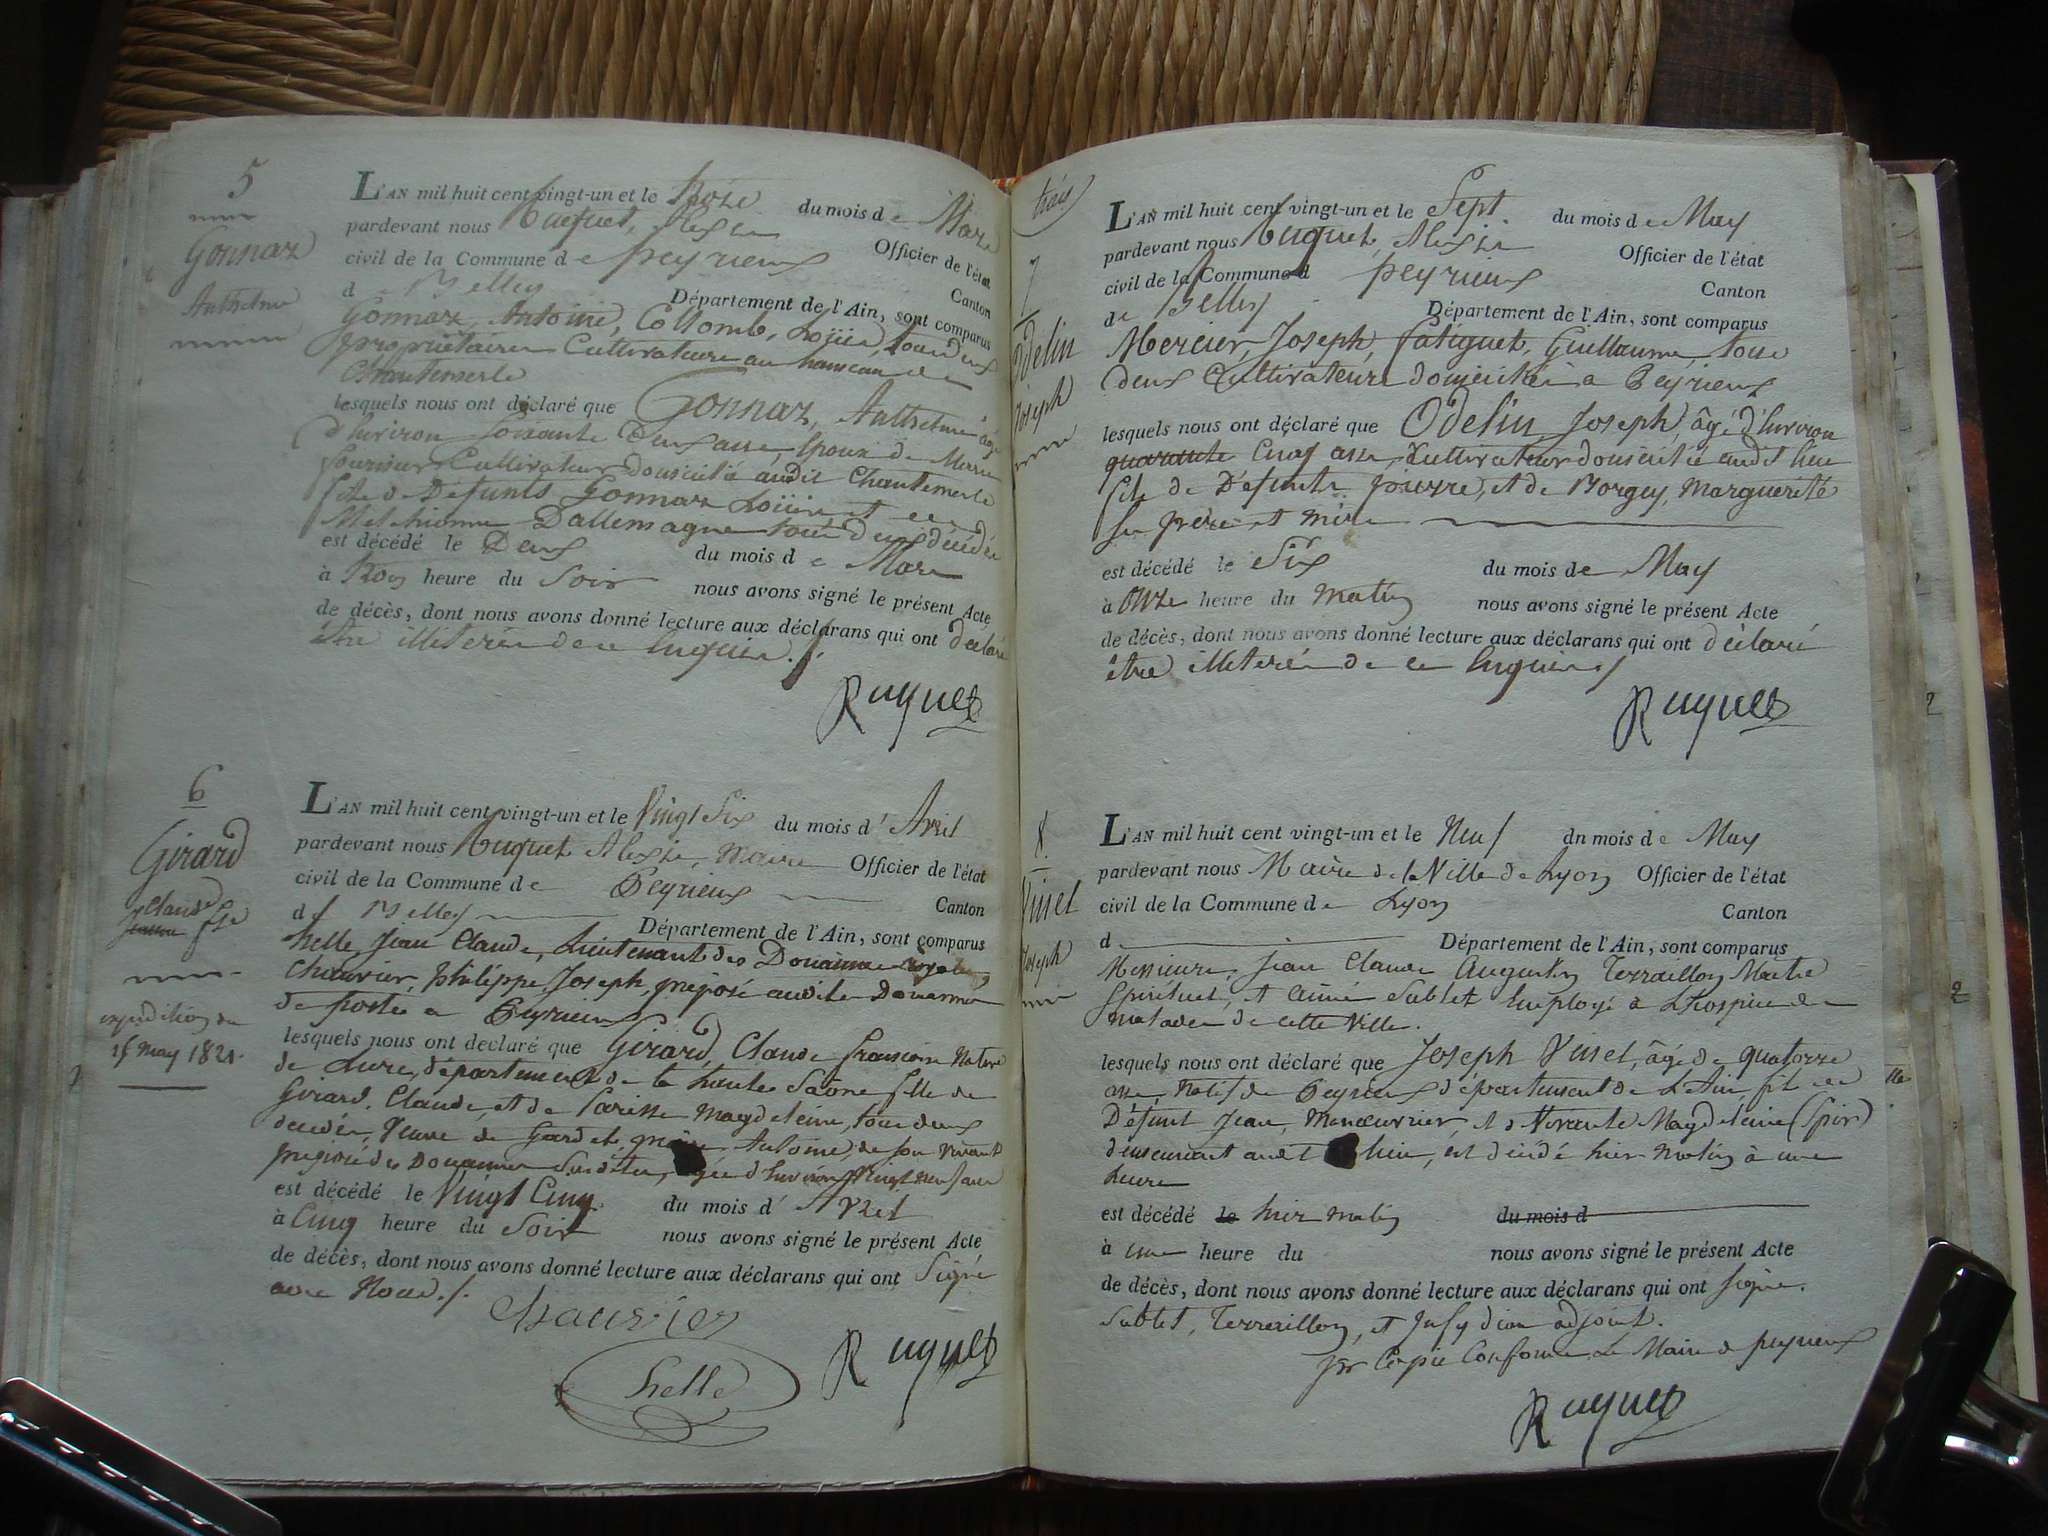 5
Gonnaz
Anthelme
L'AN mil huit cent vingt-un et le trois du mois de Mars
pardevant nous Ruquet, Alexis Officier de l'état
civil de la Commune de peyrieux Canton
d Belley Département de l'Ain, sont comparus
Gonnaz, Antoine, Collomb, tous deux
propriétaires Cultivateurs au hameau de
Chantemerle
lesquels nous ont déclaré que Gonnaz, Anthelme âgé
d'Environ soixante Deux ans, Epoux de
Cultivateur domicilié audit Chantemerle
fils de Défunts Gonnaz et de
Dallemagne tous deux décédés
est décédé le Deux du mois de Mars
à trois heure du Soir nous avons signé le présent Acte
de décès, dont nous avons donné lecture aux déclarans qui ont déclaré
être illiterés de ce Enquis./.
Ruquet
6
Girard
Claude fse
expédition du
may 1821.
L'AN mil huit cent vingt-un et le Vingt Six du mois d'Avril
pardevant nous Ruquet Alexis, Maire Officier de l'état
civil de la Commune de Peyrieux Canton
d Belley Département de l'Ain, sont comparus
helle, Jean Claude, Lieutenant des Douanes
Chauvier, philippe Joseph, préposé audites Douanes
de poste a Peyrieux
lesquels nous ont declaré que Girard, Claude françoise Native
de Lure, département de la haute Saône, fille de
Girard, Claude, et de Magdeleine, tous deux
décédés, Veuve de Antoine, de son vivant
préposé des Douanes Susdites, agée d'Environ Vingt neuf ans
est décédé le Vingt Cinq du mois d'Avril
à Cinq heure du Soir nous avons signé le présent Acte
de décès, dont nous avons donné lecture aux déclarans qui ont Signé
avec Nous./.
Chauvier
helle
Ruquet
trois
7
Odelin
Joseph
L'AN mil huit cent vingt-un et le Sept du mois de May
pardevant nous Ruquet, Alexis Officier de l'état
civil de la Commune d peyrieux Canton
de Belley Département de l'Ain, sont comparus
Mercier, Joseph, fatiguet, Guillaume, tous
deux Cultivateurs domiciliés a Peyrieux
lesquels nous ont déclaré que Odelin, Joseph, âgé d'Environ
quarante Cinq ans, Cultivateur domicilié audit lieu
fils de Défunts pierre, et de Borgey, Marguerite
ses père et mère
est décédé le Six du mois de May
à onze heure du matin nous avons signé le présent Acte
de décès, dont nous avons donné lecture aux déclarans qui ont déclaré
être illiterés de ce Enquis./
Ruquet
8.
Vuset
Joseph
L'AN mil huit cent vingt-un et le Neuf dn mois de May
pardevant nous Maire de la Ville de Lyon Officier de l'état
civil de la Commune de Lyon Canton
d Département de l'Ain, sont comparus
Messieurs, Jean Claude Augustin Terraillon Maitre
Spirituel, et aimé Sublet Employé a L'hospice des
malades de cette Ville.
lesquels nous ont déclaré que Joseph Vuset, âgé de quatorze
ans, Natif de Peyrieux département de L'Ain, fils de
Défunt Jean, Manoeuvrier, et Vivante Magdeleine (Spir)
demeurant audit lieu, est décédé hier matin à une
heure
est décédé le hier matin du mois d
à une heure du nous avons signé le présent Acte
de décès, dont nous avons donné lecture aux déclarans qui ont signé.
Sublet, Terraillon, et adjoint.
pr Copie Conforme Le Maire de peyrieux
Ruquet